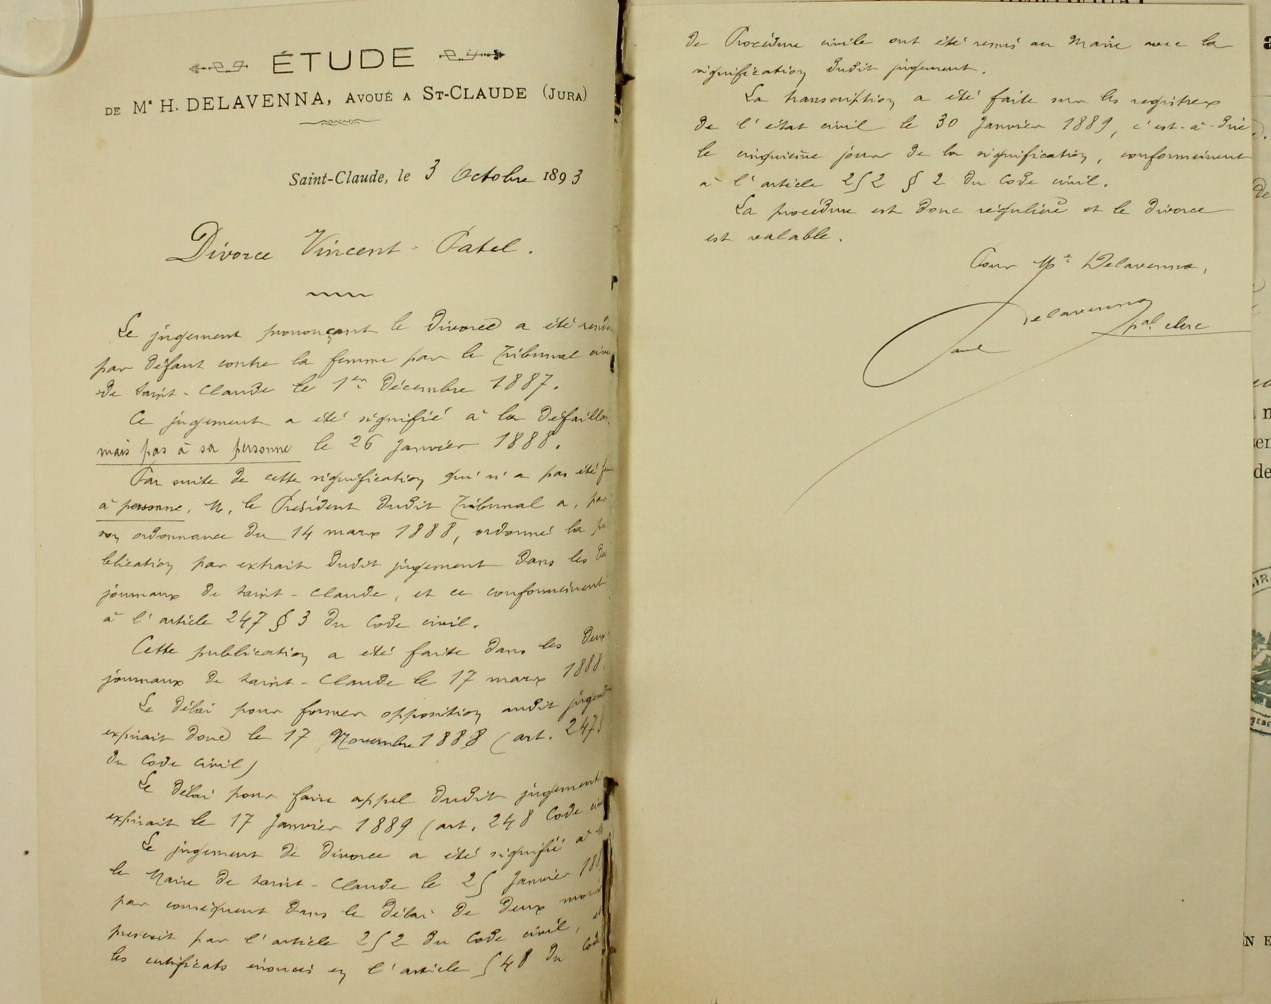 ÉTUDE
DE Mᵉ H. DELAVENNA, AVOUÉ A ST-CLAUDE (JURA)
Saint-Claude, le 3 Octobre 1893
Divorce Vincent - Patel.
Le jugement prononçant le divorce a été
par défaut contre la femme par le Tribunal
de Saint-Claude le 1er Décembre 1887.
Ce jugement a été signifié à la
mais pas à sa personne le 26 Janvier 1888.
Par suite de cette signification qui n'a pas été
à personne, M. le Président dudit Tribunal a, par
son ordonnance du 14 mars 1888, ordonné la
blication par extrait dudit jugement dans les
journaux de Saint-Claude, et ce conformément
à l'article 247 § 3 du Code civil.
Cette publication a été faite dans les deux
journaux de Saint-Claude le 17 mars 1888
Le délai pour former opposition audit
expirait donc le 17 Novembre 1888 (art. 247
du Code civil)
Le délai pour faire appel dudit jugement
expirait le 17 Janvier 1889 (art. 248 Code
Le jugement de divorce a été signifié à
le Maire de Saint-Claude le 25 Janvier
par conséquent dans le délai de deux mois
prescrit par l'article 252 du Code civil,
les certificats énoncés en l'article 548 du Code
de Procédure civile ont été remis au Maire avec la
signification dudit jugement.
La transcription a été faite sur les registres
de l'état civil le 30 Janvier 1889, c'est-à-dire
le cinquième jour de la signification, conformément
à l'article 252 § 2 du Code civil.
La procédure est donc régulière et le divorce
est valable.
Pour Mᵉ Delavenna,
Delavenna
Paul
pal clerc